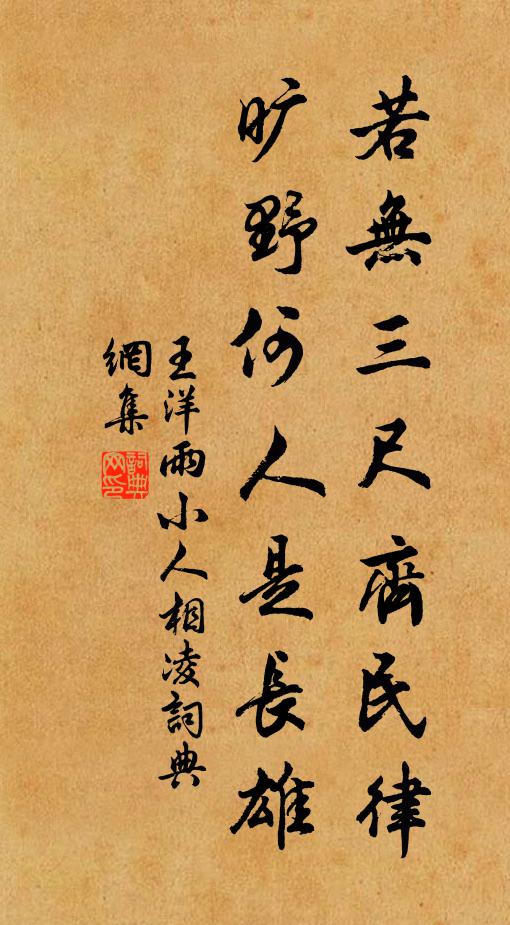 若無三尺齊民律
旷野何人是長雄
王洋兩小人相凌詞典
網集
詞典
网印